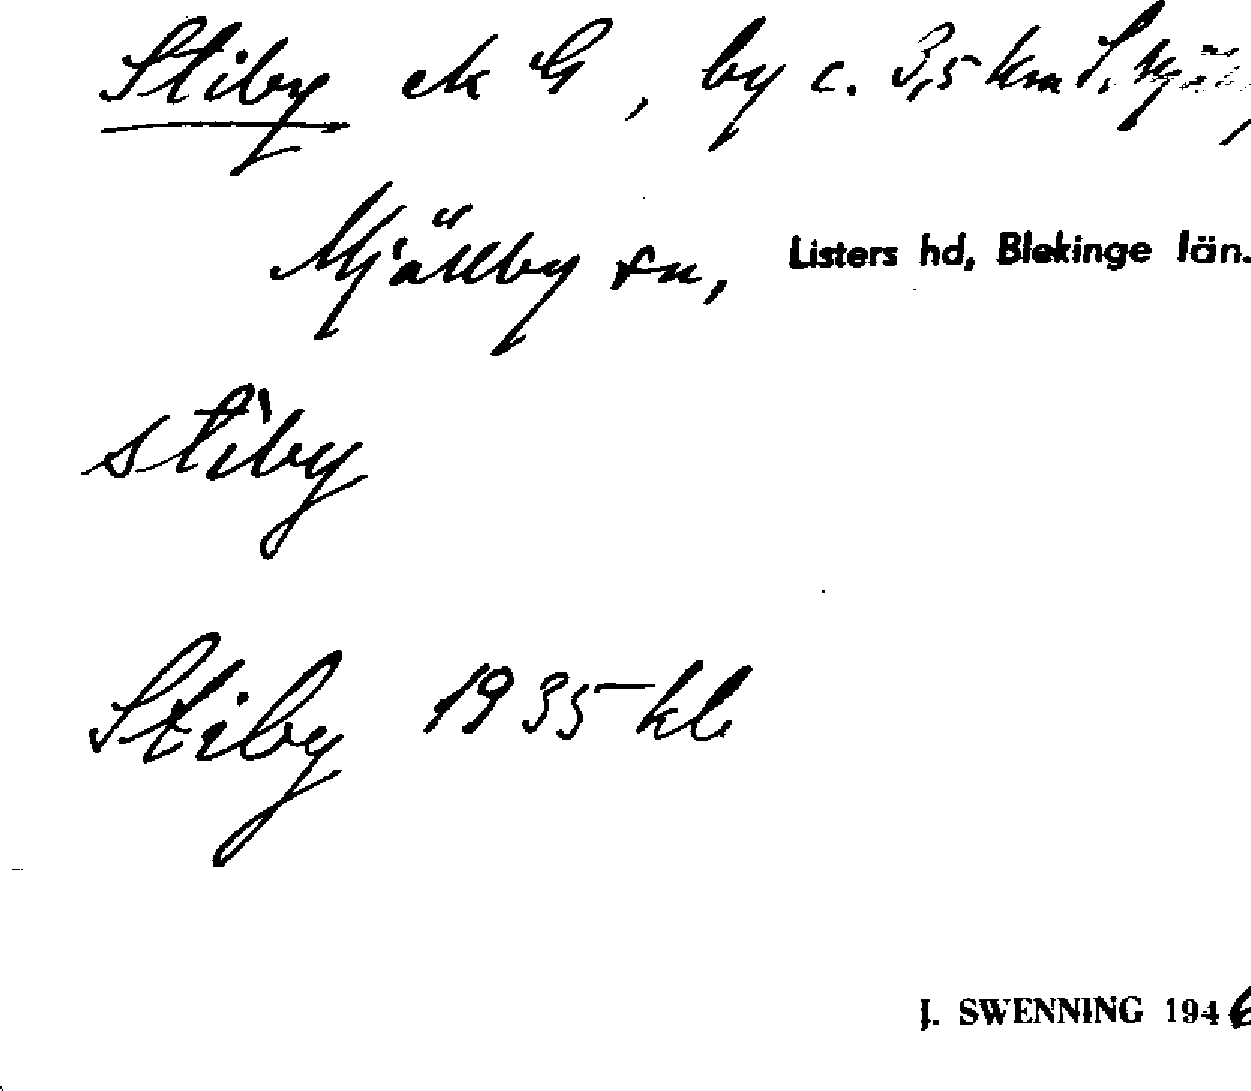 Stiby ek G, by c. 3,5 km S.
Mjällby sn, Listers hd, Blekinge län.
stiby
Stiby 1935 kb
J. SWENNING 1946